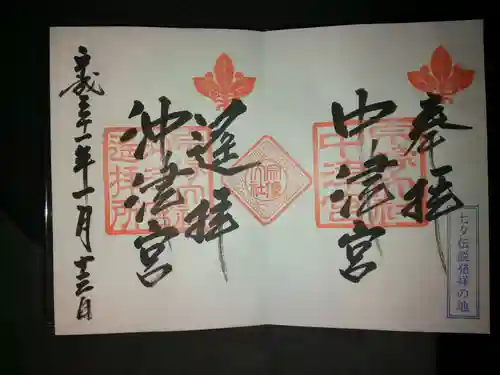 奉拝
中津宮
七夕伝説発祥の地
遥拝
沖津宮
平成三十一年一月十三日